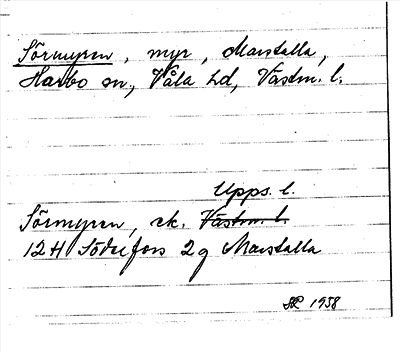 Sörmyren, myr, Marstalla,
Harbo sn, Våla hd, Västm. l.
Upps. l.
Sörmyren, ek. Västm. l.
12H Söderfors 2g Marstalla
1958